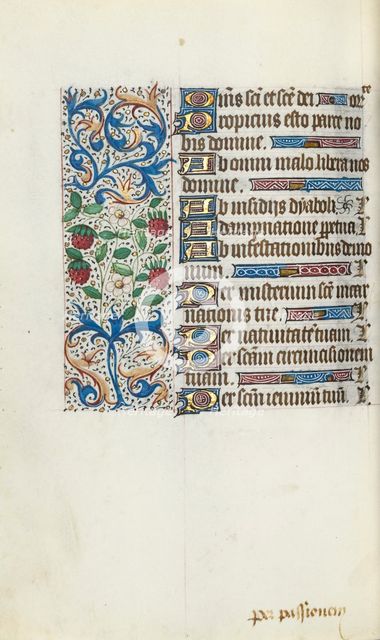 Om̄s sc̄i et sc̄e dei orᵗᵉ
Propicius esto parce no
bis domine.
Ab omni malo libera nos
domine.
Ab insidijs dyaboli
A dampnatione ppetua
Ab infestationibus demo
nium.
Per misterium sc̄e incar
nationis tue.
Per natiuitatē tuam.
Per scām circumcisionem
tuam.
Per scm̄ ieiunium tuū.
per passionem